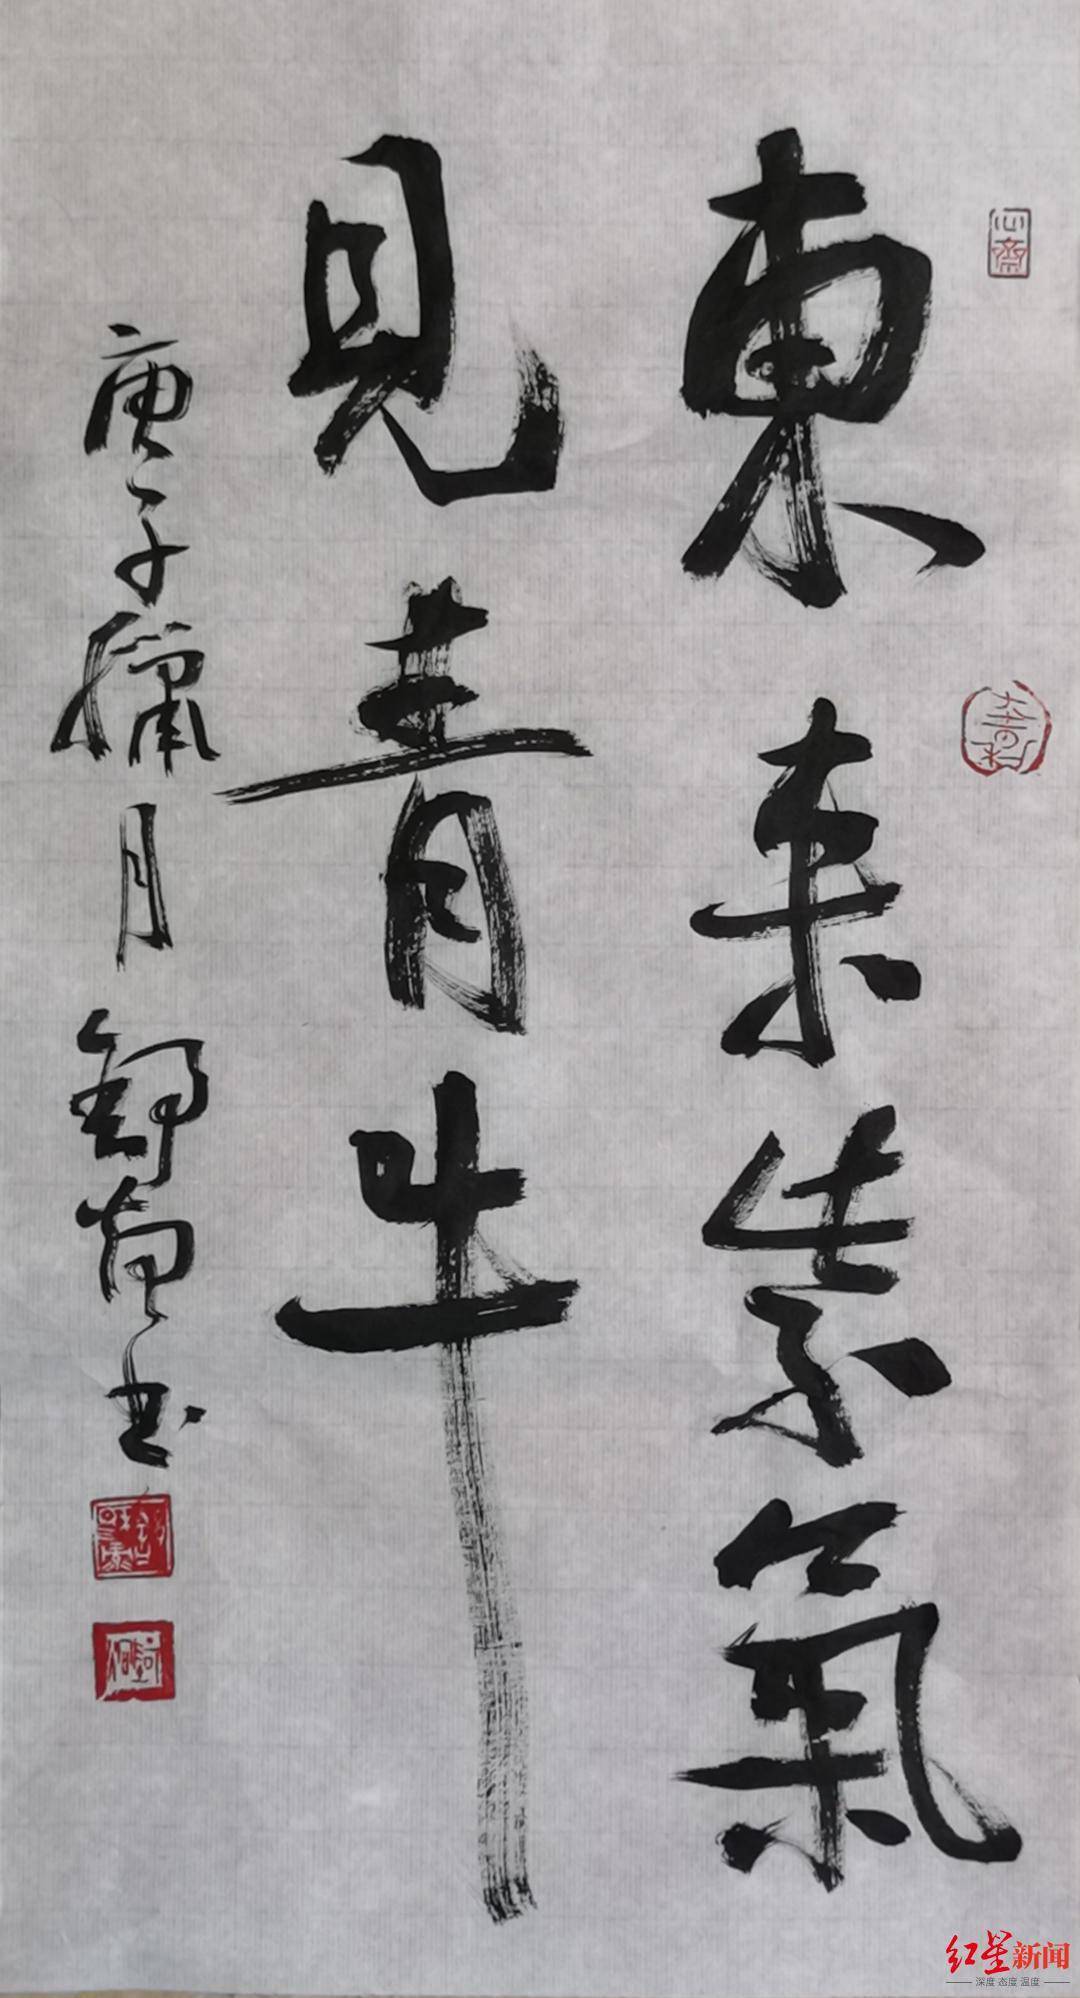 東来紫氣
見青牛
庚子臘月舒炯書
心齋
红星新闻
深度 态度 温度